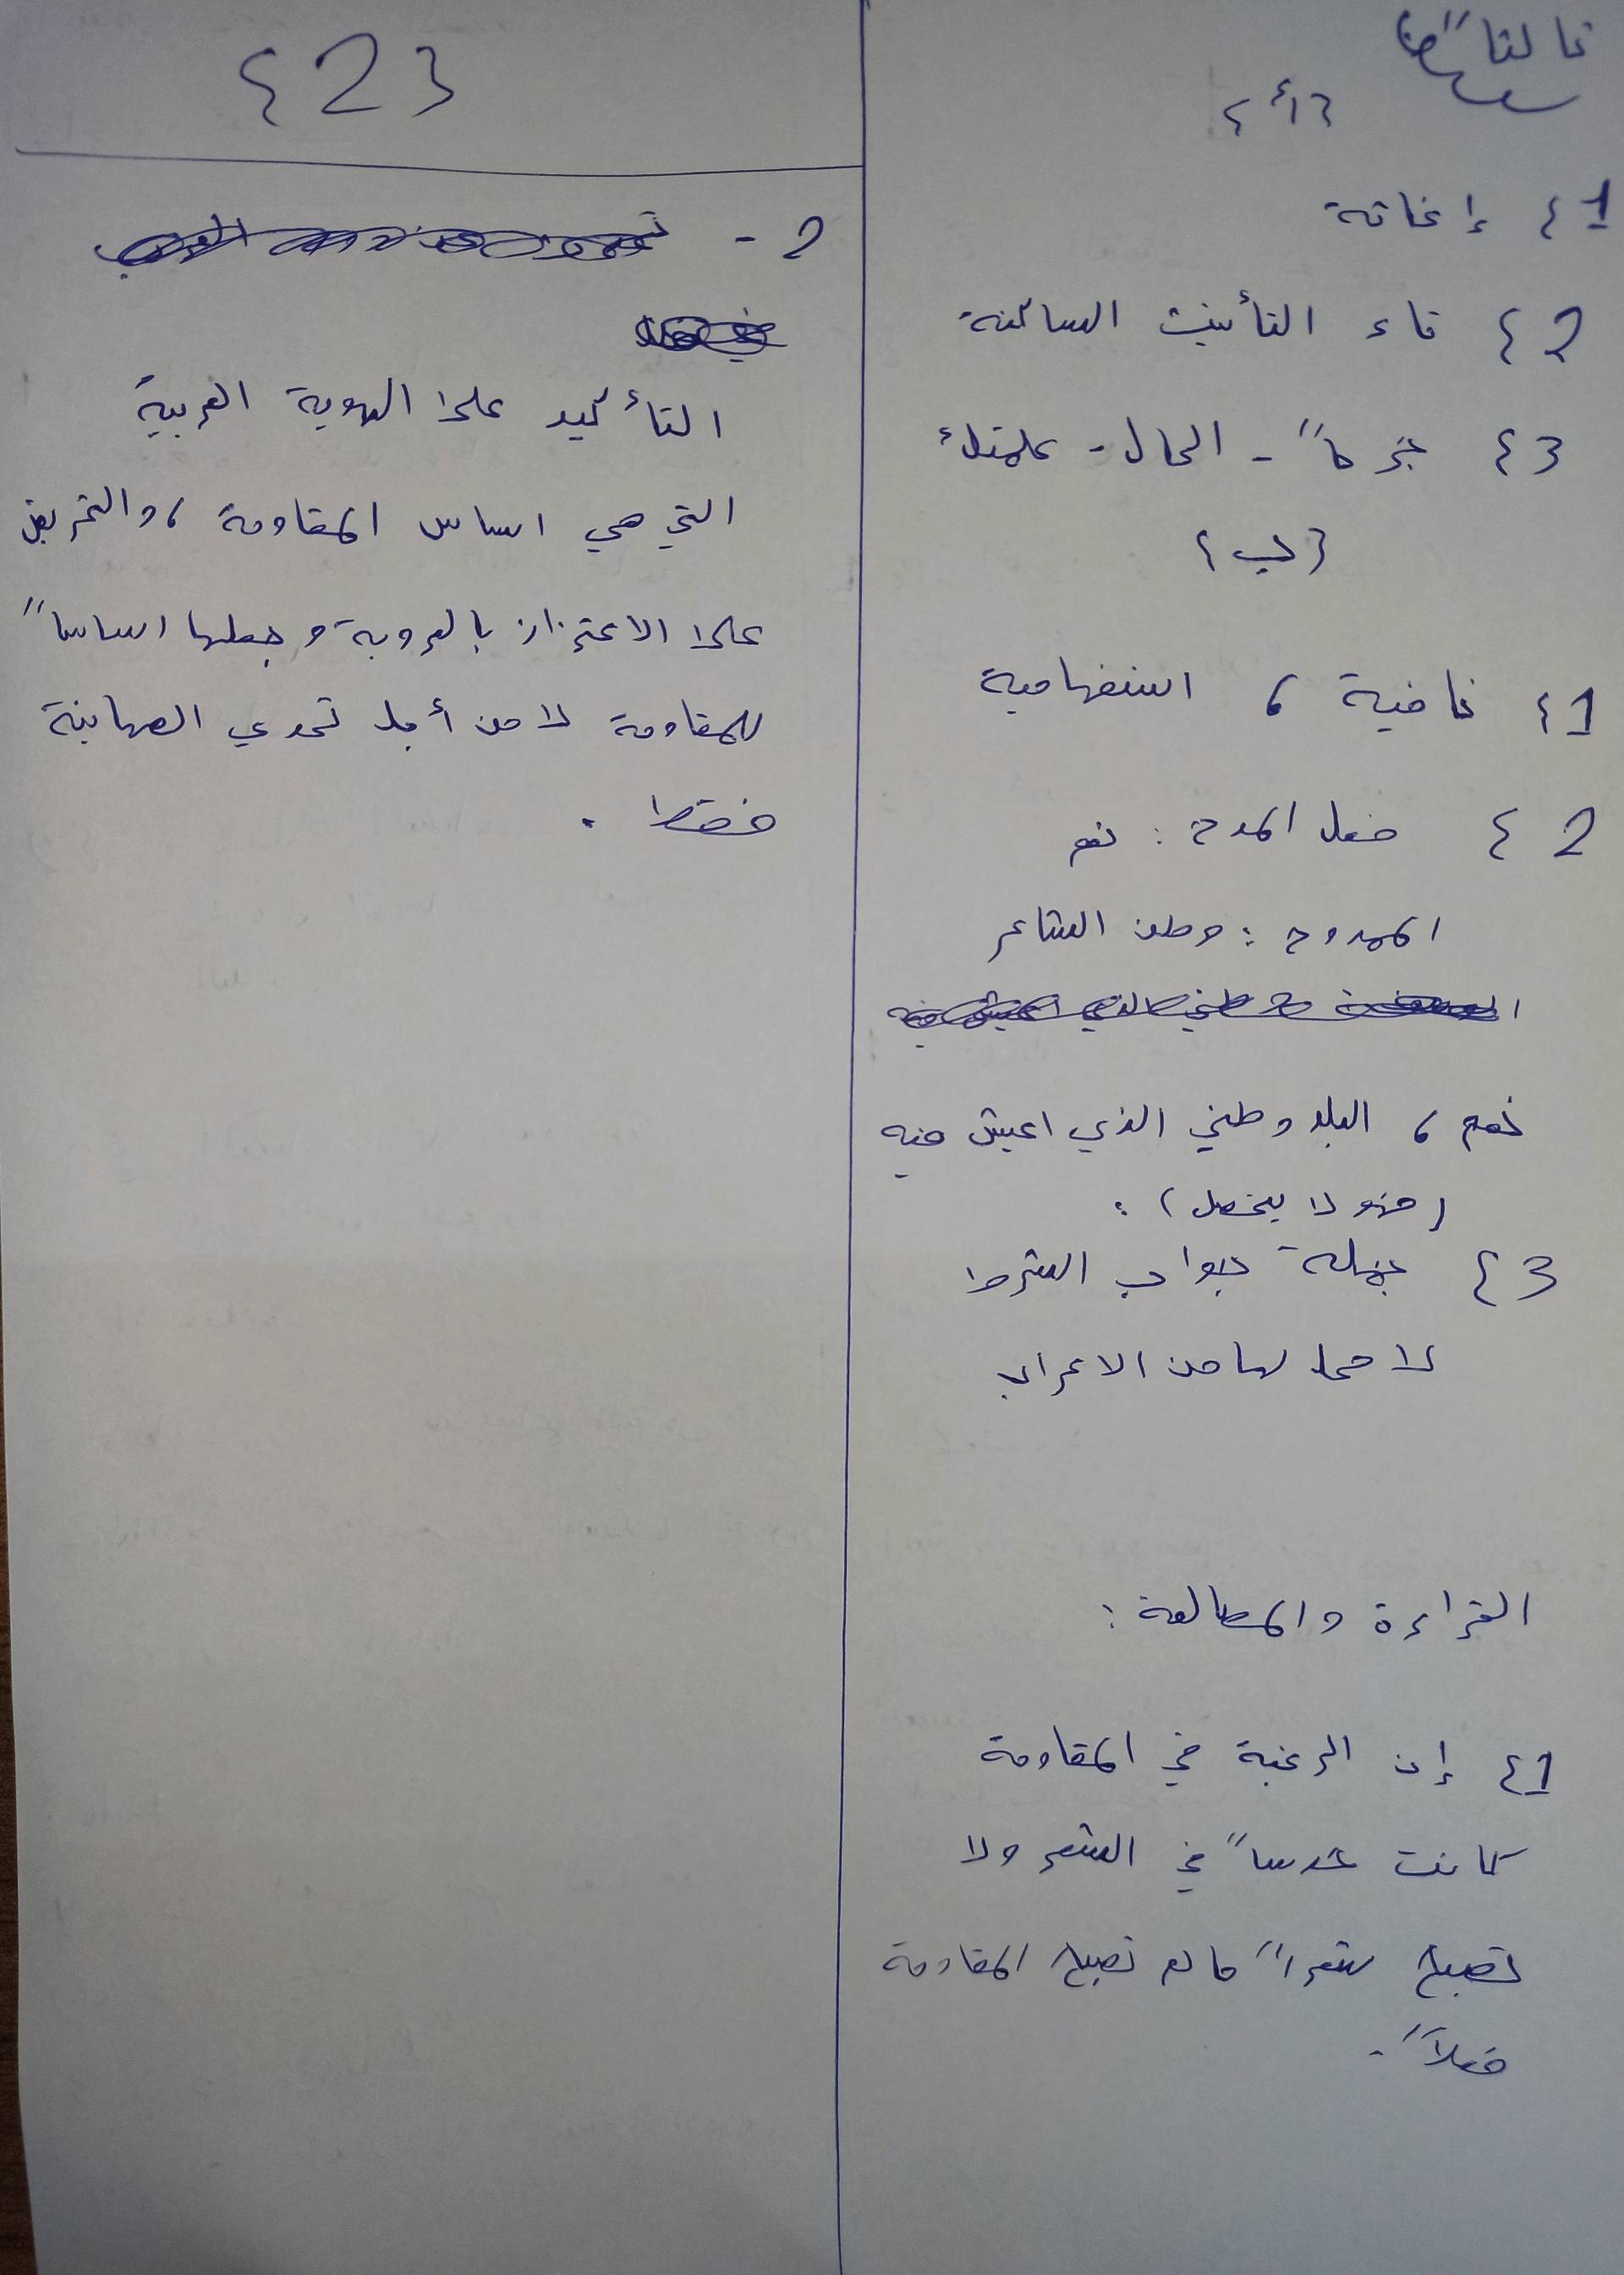 ثالثاً
{أ}
1} إغاثة
2} تاء التأنيث الساكنة
3} - الحال -
{ب}
1} نافية ، استفهامية
2} فعل المدح : نعم
الممدوح : وطن الشاعر
نعم ، البلد وطني الذي اعيش فيه
(فهو لا يخصل) :
3} جملة جواب الشرط
لا محل لها من الاعراب
القراءة والمطالعة :
1} إن الرغبة في المقاومة
كانت غرساً في الشعر ولا
تصبح شعراً ما لم تصبح المقاومة
فعلاً .
{2}
2 -
التأكيد على الهوية العربية
التي هي اساس المقاومة ، والتحريض
على الاعتزاز بالعروبة وجعلها اساساً
للمقاومة لا من أجل تحدي الصهاينة
فقط .